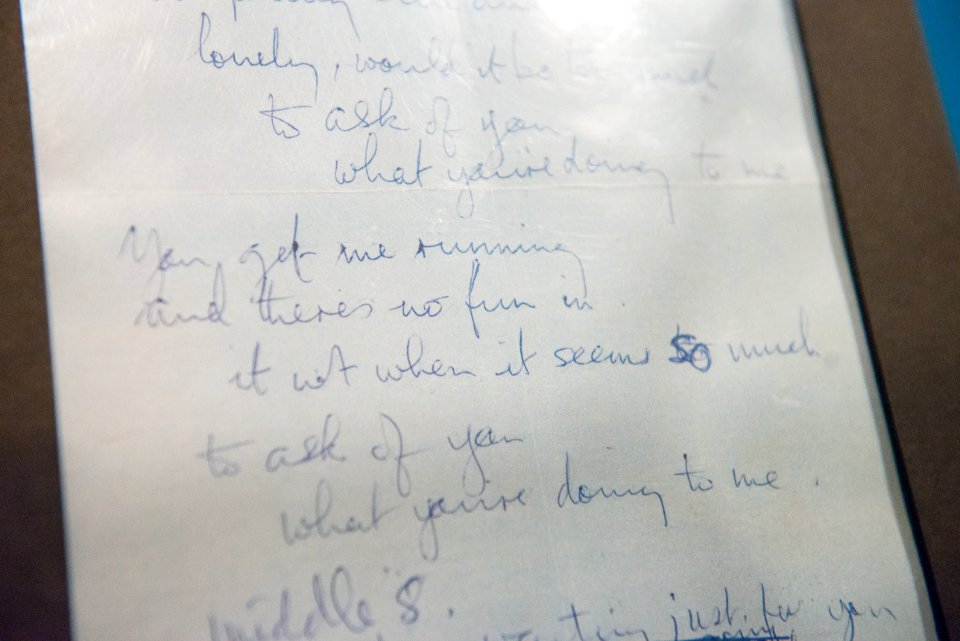 lonely, would it be too much
to ask of you
what you're doing to me
You, get me running
and theres no fun in
it not when it seems so much
to ask of you
what you're doing to me.
middle 8.
waiting just for you